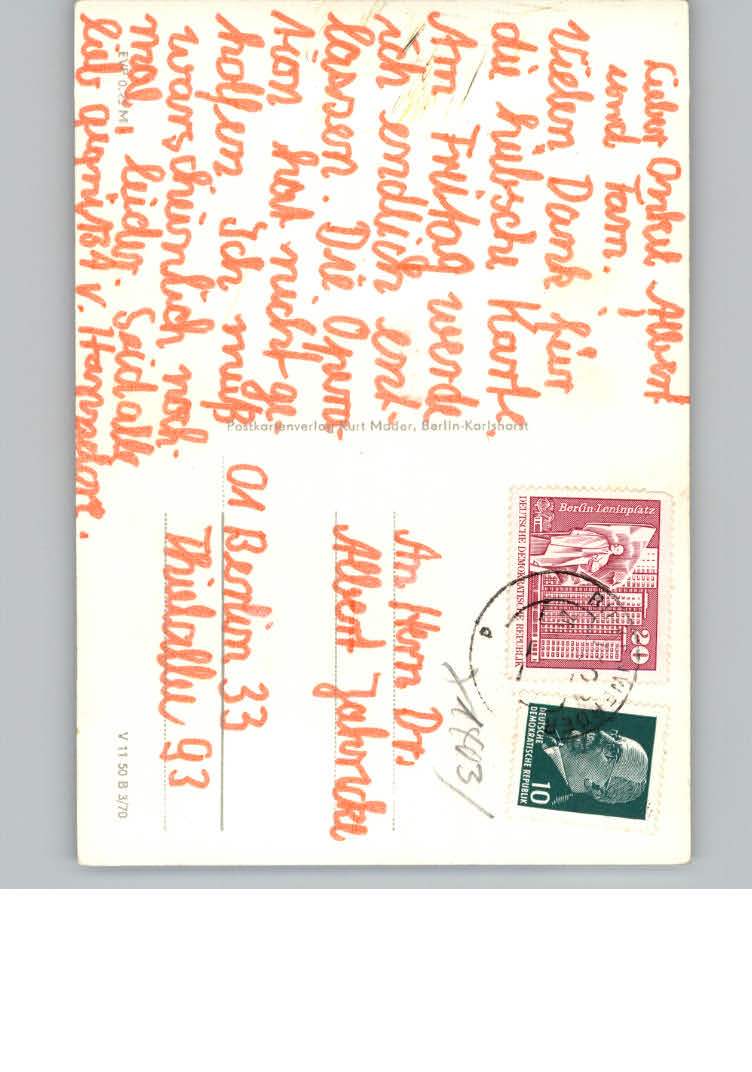 Lieber Onkel Albert
und Fam.!
Vielen Dank für
die hübsche Karte.
Am Freitag werde
ich endlich ent-
lassen. Die Opera-
tion hat nicht ge-
holfen. Ich muß
warscheinlich noch-
mal, leider. Seid alle
lieb gegrüßt v. Hannelore.
EVP 0,25 M
Postkartenverlag Kurt Mader, Berlin-Karlshorst
An Herrn Dr.
Albert
01 Berlin 33
Thielallee 93
V 11 50 B 3/70
Berlin-Leninplatz
DEUTSCHE DEMOKRATISCHE REPUBLIK
20
DEUTSCHE
DEMOKRATISCHE REPUBLIK
10